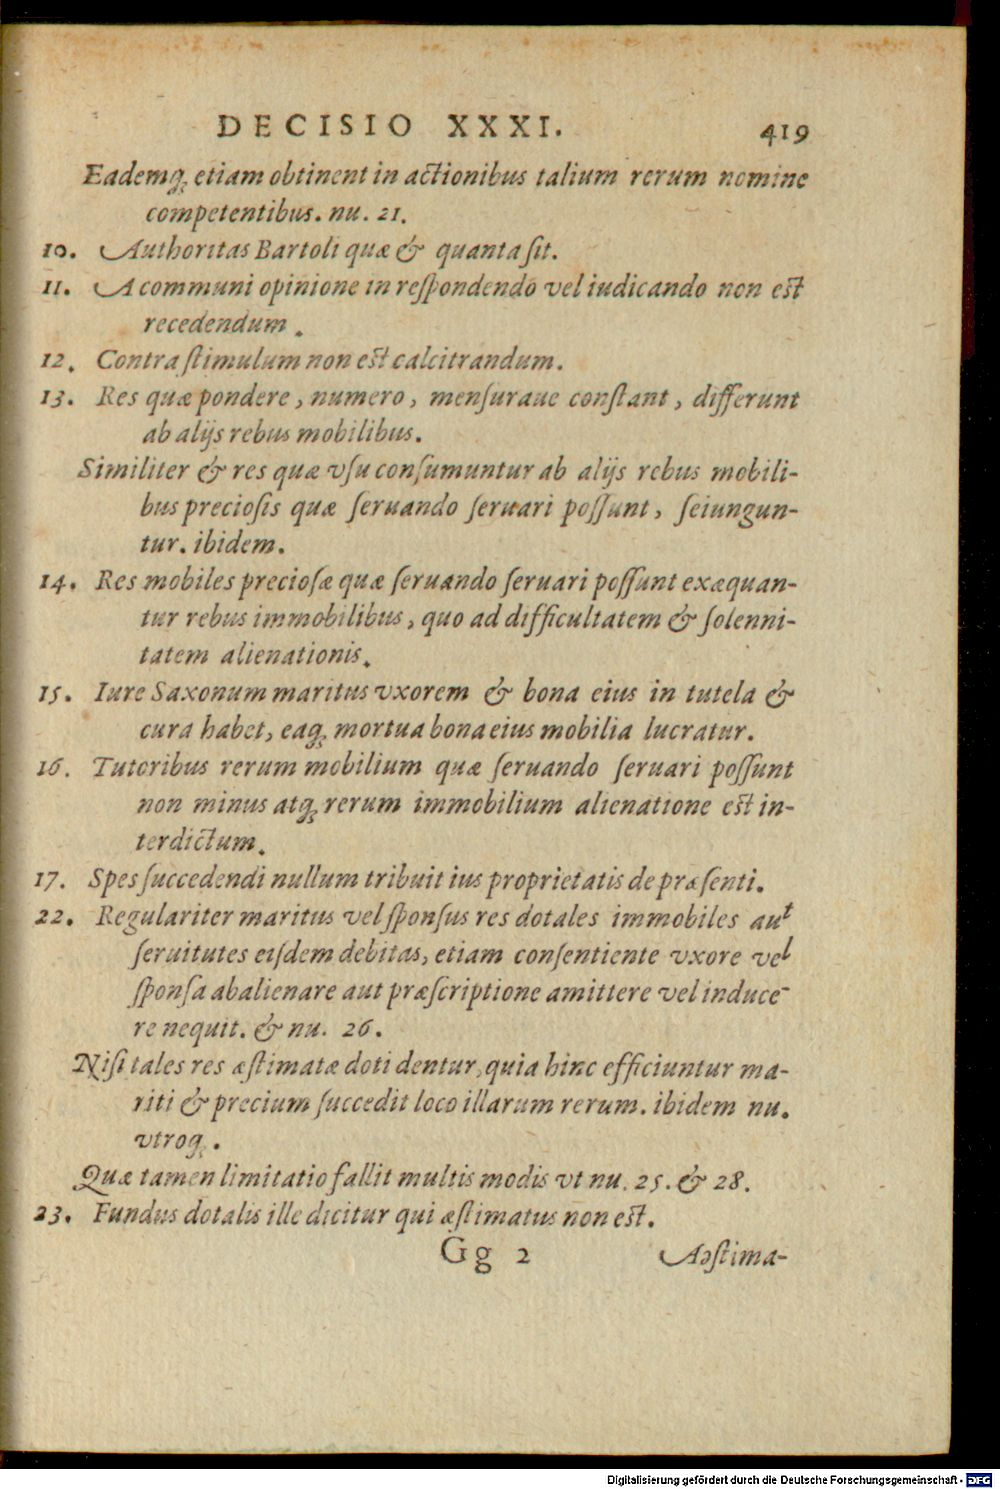 DECISIO XXXI. 419
Eademq́ꝫ etiam obtinent in actionibus talium rerum nomine
competentibus. nu. 21.
10. Authoritas Bartoli quæ & quanta ſit.
11. A communi opinione in reſpondendo vel iudicando non eſt
recedendum.
12. Contra ſtimulum non eſt calcitrandum.
13. Res quæ pondere, numero, menſuraue conſtant, differunt
ab alijs rebus mobilibus.
Similiter & res quæ vſu conſumuntur ab alijs rebus mobili-
bus precioſis quæ ſeruando ſeruari poſſunt, ſeiungun-
tur. ibidem.
14. Res mobiles precioſæ quæ ſeruando ſeruari poſſunt exæquan-
tur rebus immobilibus, quo ad difficultatem & ſolenni-
tatem alienationis.
15. Iure Saxonum maritus vxorem & bona eius in tutela &
cura habet, eaqꝫ mortua bona eius mobilia lucratur.
16. Tutoribus rerum mobilium quæ ſeruando ſeruari poſſunt
non minus atqꝫ rerum immobilium alienatione eſt in-
terdictum.
17. Spes ſuccedendi nullum tribuit ius proprietatis de præſenti.
22. Regulariter maritus vel ſponſus res dotales immobiles aut
ſeruitutes eiſdem debitas, etiam conſentiente vxore vel
ſponſa abalienare aut præſcriptione amittere vel induce-
re nequit. & nu. 26.
Niſi tales res æſtimatæ doti dentur, quia hinc efficiuntur ma-
riti & precium ſuccedit loco illarum rerum. ibidem nu.
vtroqꝫ.
Quæ tamen limitatio fallit multis modis vt nu. 25. & 28.
23. Fundus dotalis ille dicitur qui æſtimatus non eſt.
Gg 2 Aəſtima-
Digitalisierung gefördert durch die Deutsche Forschungsgemeinschaft - DFG